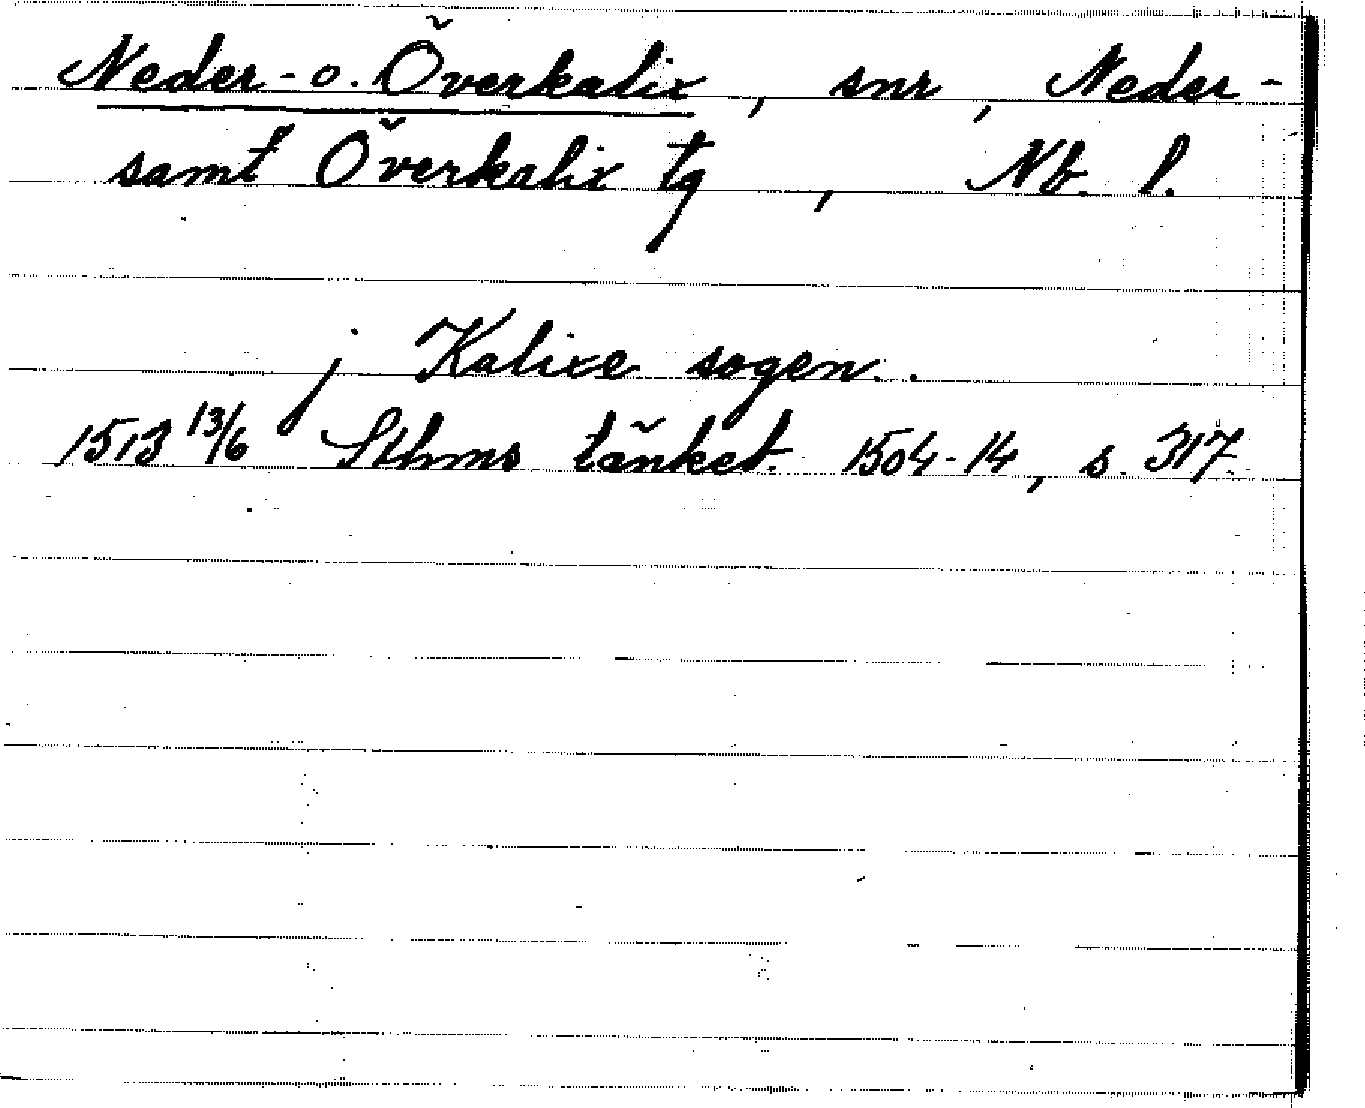 Neder- o. Överkalix, snr, Neder-
samt Överkalix tg, Nb. l.
j Kalixe sogen.
1513 13/6 Sthms tänkeb. 1504-14, s. 317.